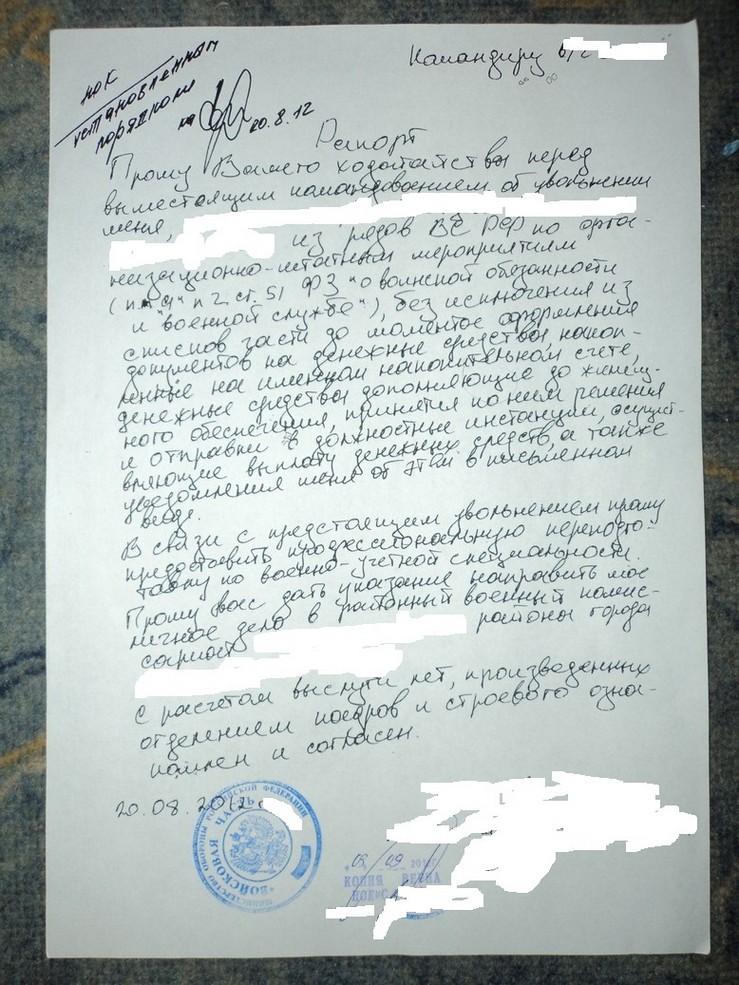 Командиру в/ч
НОК
установленным
порядком
20.8.12
Рапорт
Прошу Вашего ходатайства перед
вышестоящим командованием об увольнении
меня,
из рядов ВС РФ по орга-
низационно-штатным мероприятиям
(п.п "а" п 2 ст. 51 ФЗ "о воинской обязанности
и "военной службе"), без исключения из
списков части до момента оформления
документов на денежные средства, накоп-
ленные на именном накопительном счете,
денежные средства дополняющие до жилищ-
ного обеспечения, принятия по ним решения
и отправки в должностные инстанции, осущест-
вляющие выплату денежных средств, а также
уведомления меня об этом в письменном
виде.
В связи с предстоящим увольнением прошу
предоставить профессиональную переподго-
товку по военно-учетной специальности.
Прошу Вас дать указание направить мое
личное дело в районный военный комис-
сариат районы города
С расчетом выслуги лет, произведенных
отделением кадров и строевого озна-
комлен и согласен.
20.08.2012
МИНИСТЕРСТВО ОБОРОНЫ РОССИЙСКОЙ ФЕДЕРАЦИИ
ВОЙСКОВАЯ ЧАСТЬ
03 / 09 201
КОПИЯ ВЕРНА